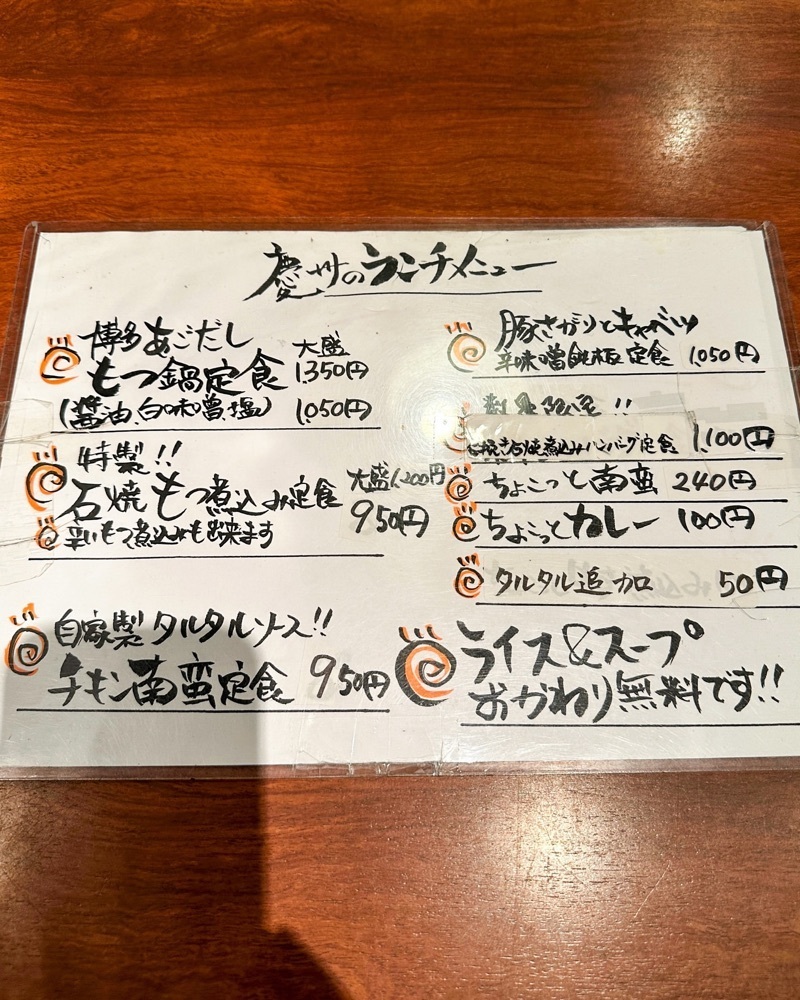 慶州のランチメニュー
博多あごだし
もつ鍋定食 大盛 1,350円
(醤油、白味噌、塩) 1,050円
特製!!
石焼もつ煮込み定食 大盛1,200円 950円
辛いもつ煮込みも出来ます
自家製タルタルソース!!
チキン南蛮定食 950円
豚さがりとキャベツ
辛味噌鉄板定食 1,050円
数量限定!!
石焼煮込みハンバーグ定食 1,100円
ちょこっと南蛮 240円
ちょこっとカレー 100円
タルタル追加 50円
ライス&スープ
おかわり無料です!!